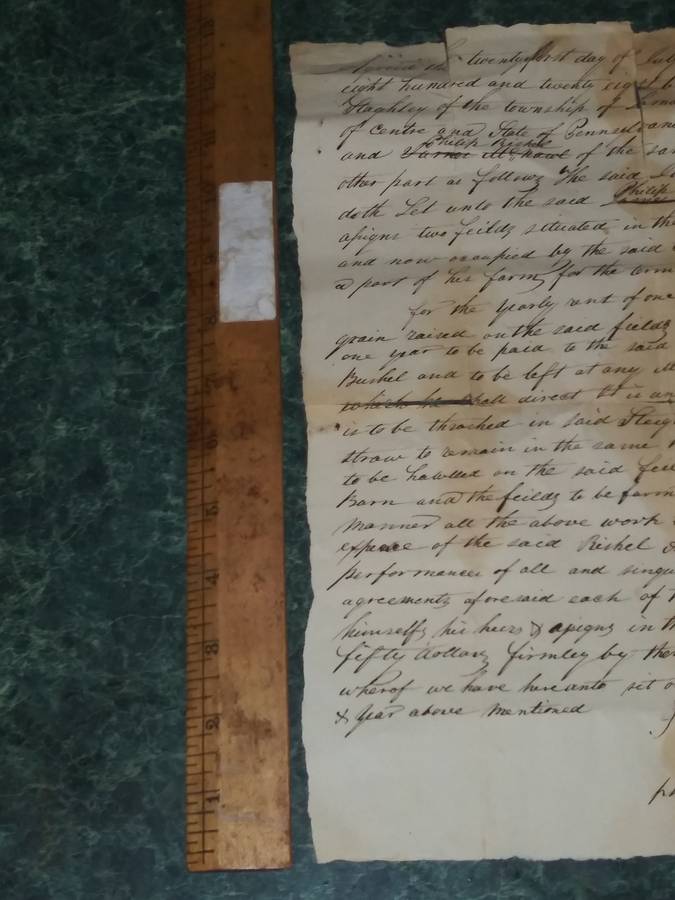 the twentyfirst day of July
eight hundred and twenty eight
of the township of
of centre and State of Pennsylvania
Philip Rishel
and James of the
other part as follows The said
Philip
doth Let unto the said James
asigns two feilds situated in the
and now occupied by the said
a part of his farm for the
for the yearly rent of one
grain raised on the said fields
one year to be paid to the said
Bushel and to be left at any
which he shall direct it is
is to be thrashed in said
straw to remain in the same
to be hawlled on the said
Barn and the feilds to be farm
manner all the above work
expence of the said Rishel &
performances of all and singu
agreements aforesaid each of
himselfs his heirs & asigns in th
fifty dollars firmley by the
wherof we have hereunto sit
& year above mentioned
13
12
11
10
9
8
7
6
5
4
3
2
1